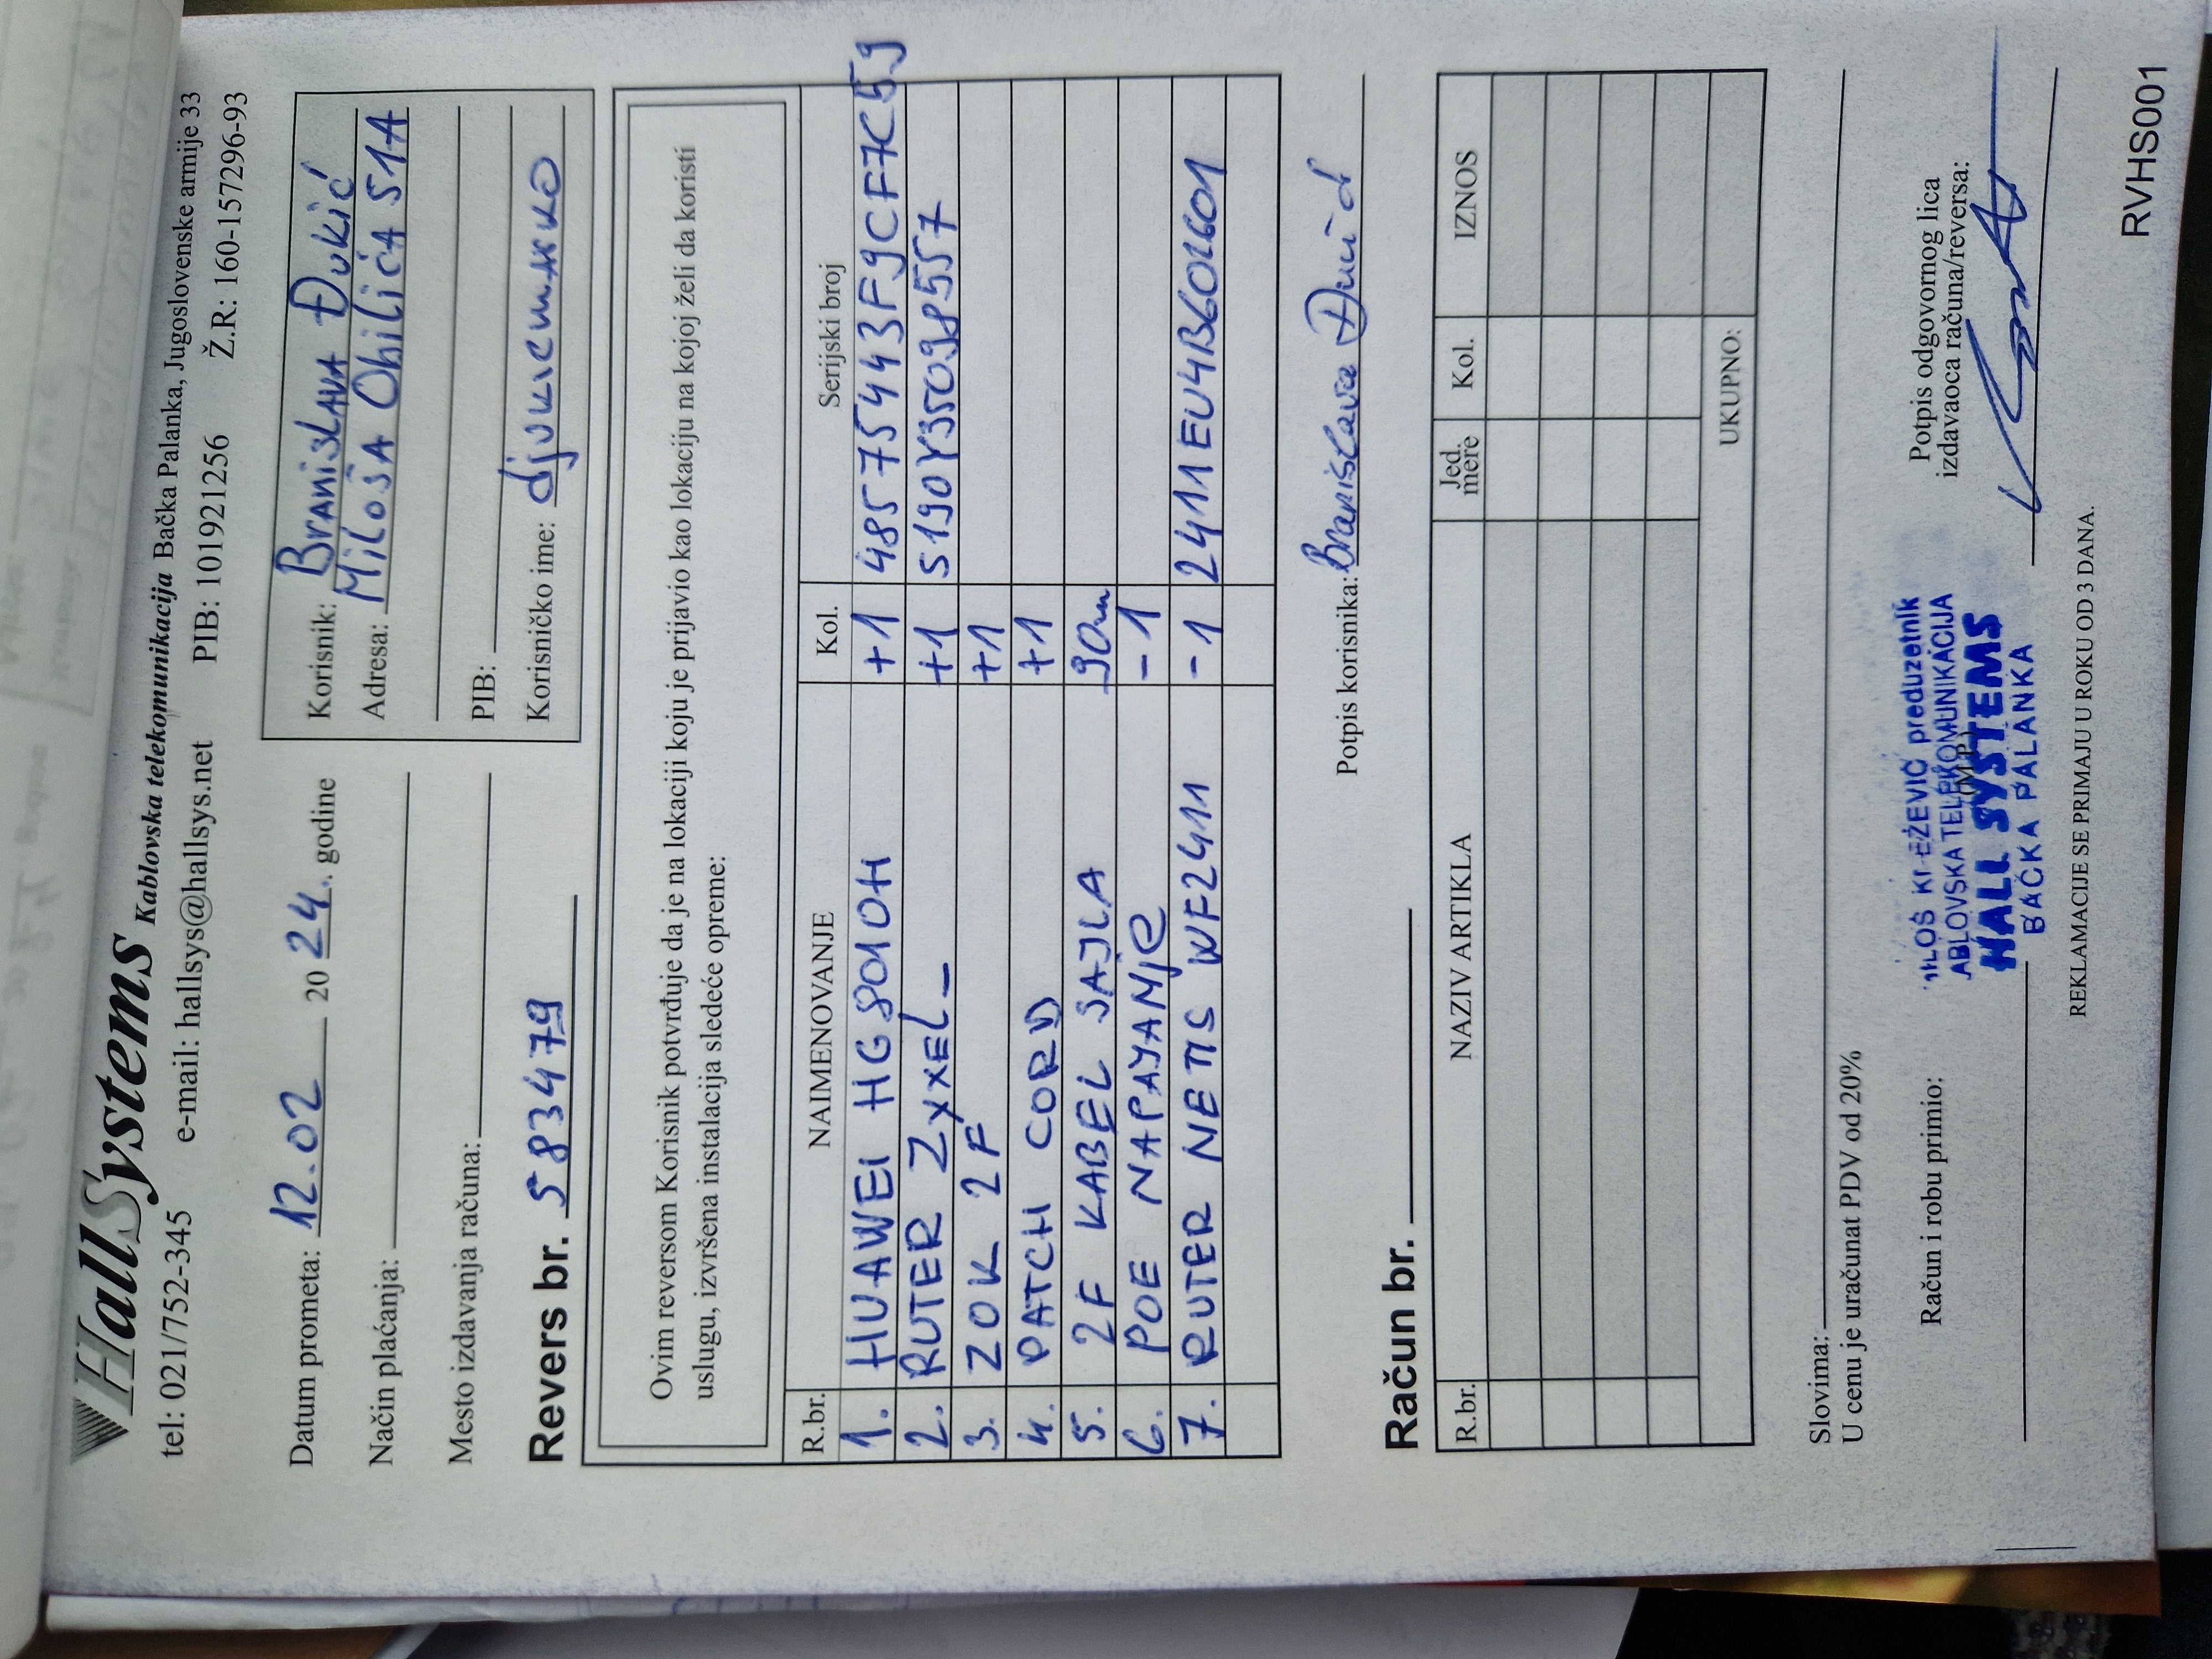 HallSystems Kablovska telekomunikacija Bačka Palanka, Jugoslovenske armije 33
tel: 021/752-345 e-mail: hallsys@hallsys.net PIB: 101921256 Ž.R: 160-157296-93
Datum prometa: 12.02 20 24. godine
Način plaćanja:
Mesto izdavanja računa:
Revers br. 583479
Korisnik: Branislava Đukić
Adresa: Miloša Obilića 51A
PIB:
Korisničko ime:
Ovim reversom Korisnik potvrđuje da je na lokaciji koju je prijavio kao lokaciju na kojoj želi da koristi
uslugu, izvršena instalacija sledeće opreme:
R.br. NAIMENOVANJE Kol. Serijski broj
1. HUAWEI HG8010H +1 48575443F9CF7C59
2. RUTER ZYXEL +1 S190Y35098557
3. ZOK 2F +1
4. PATCH CORD +1
5. 2F KABEL SAJLA 90m
6. POE NAPAJANJE -1
7. RUTER NETIS WF2411 -1 2411EU4B6026601
Potpis korisnika: Branislava Đukić
Račun br.
R.br. NAZIV ARTIKLA Jed. mere Kol. IZNOS
UKUPNO:
Slovima:
U cenu je uračunat PDV od 20%
Račun i robu primio:
(M.P.)
Potpis odgovornog lica
izdavaoca računa/reversa:
preduzetnik
ABLOVSKA TELEKOMUNIKACIJA
HALL SYSTEMS
BAČKA PALANKA
REKLAMACIJE SE PRIMAJU U ROKU OD 3 DANA.
RVHS001